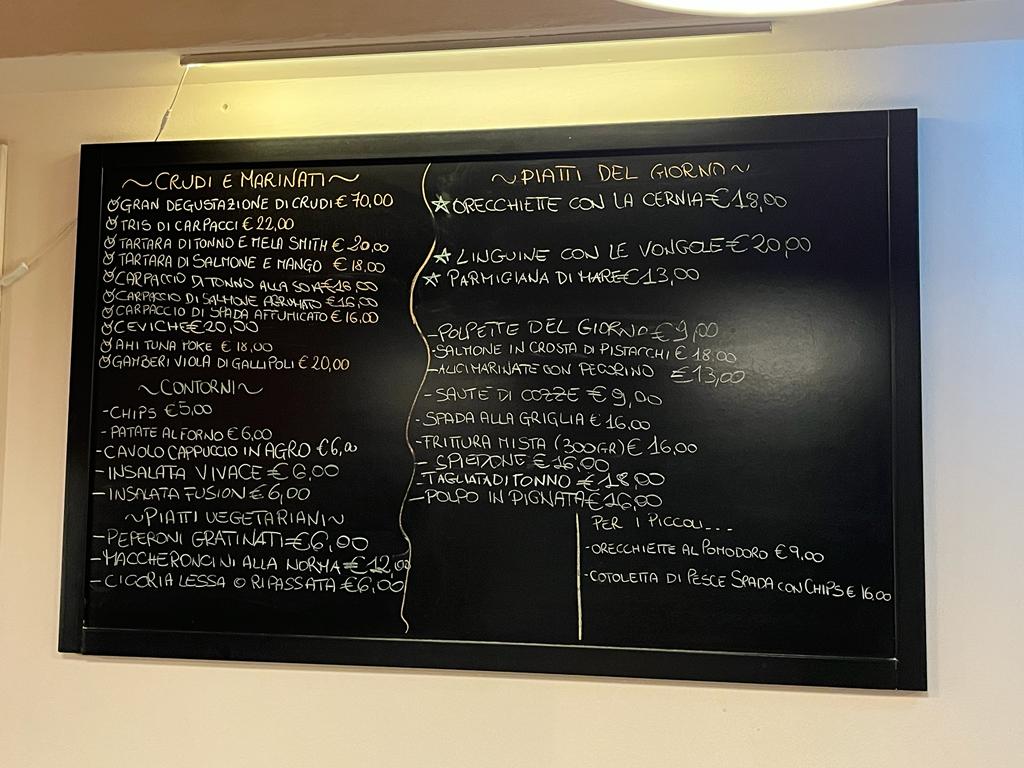 ~CRUDI E MARINATI~
GRAN DEGUSTAZIONE DI CRUDI € 70,00
TRIS DI CARPACCI € 22,00
TARTARA DI TONNO E MELA SMITH € 20,00
TARTARA DI SALMONE E MANGO € 18,00
CARPACCIO DI TONNO ALLA SOIA €16,00
CARPACCIO DI SALMONE AGRUMATO €16,00
CARPACCIO DI SPADA AFFUMICATO € 16,00
CEVICHE €20,00
AHI TUNA POKE € 18,00
GAMBERI VIOLA DI GALLIPOLI € 20,00
~CONTORNI~
-CHIPS €5,00
-PATATE AL FORNO € 6,00
-CAVOLO CAPPUCCIO IN AGRO €6,00
-INSALATA VIVACE € 6,00
-INSALATA FUSION € 6,00
~PIATTI VEGETARIANI~
-PEPERONI GRATINATI €6,00
-MACCHERONCINI ALLA NORMA €12,00
-CICORIA LESSA O RIPASSATA €6,00
~PIATTI DEL GIORNO~
☆ORECCHIETTE CON LA CERNIA €18,00
☆LINGUINE CON LE VONGOLE €20,00
☆PARMIGIANA DI MARE €13,00
-POLPETTE DEL GIORNO € 9,00
-SALMONE IN CROSTA DI PISTACCHI € 18,00
-ALICI MARINATE CON PECORINO €13,00
-SAUTE DI COZZE € 9,00
-SPADA ALLA GRIGLIA € 16,00
-FRITURA MISTA (300GR) € 16,00
- SPIEDONE € 16,00
-TAGLIATA DI TONNO € 18,00
-POLPO IN PIGNATA € 16,00
PER I PICCOLI...
-ORECCHIETTE AL POMODORO € 9,00
-COTOLETTA DI PESCE SPADA CON CHIPS € 16,00